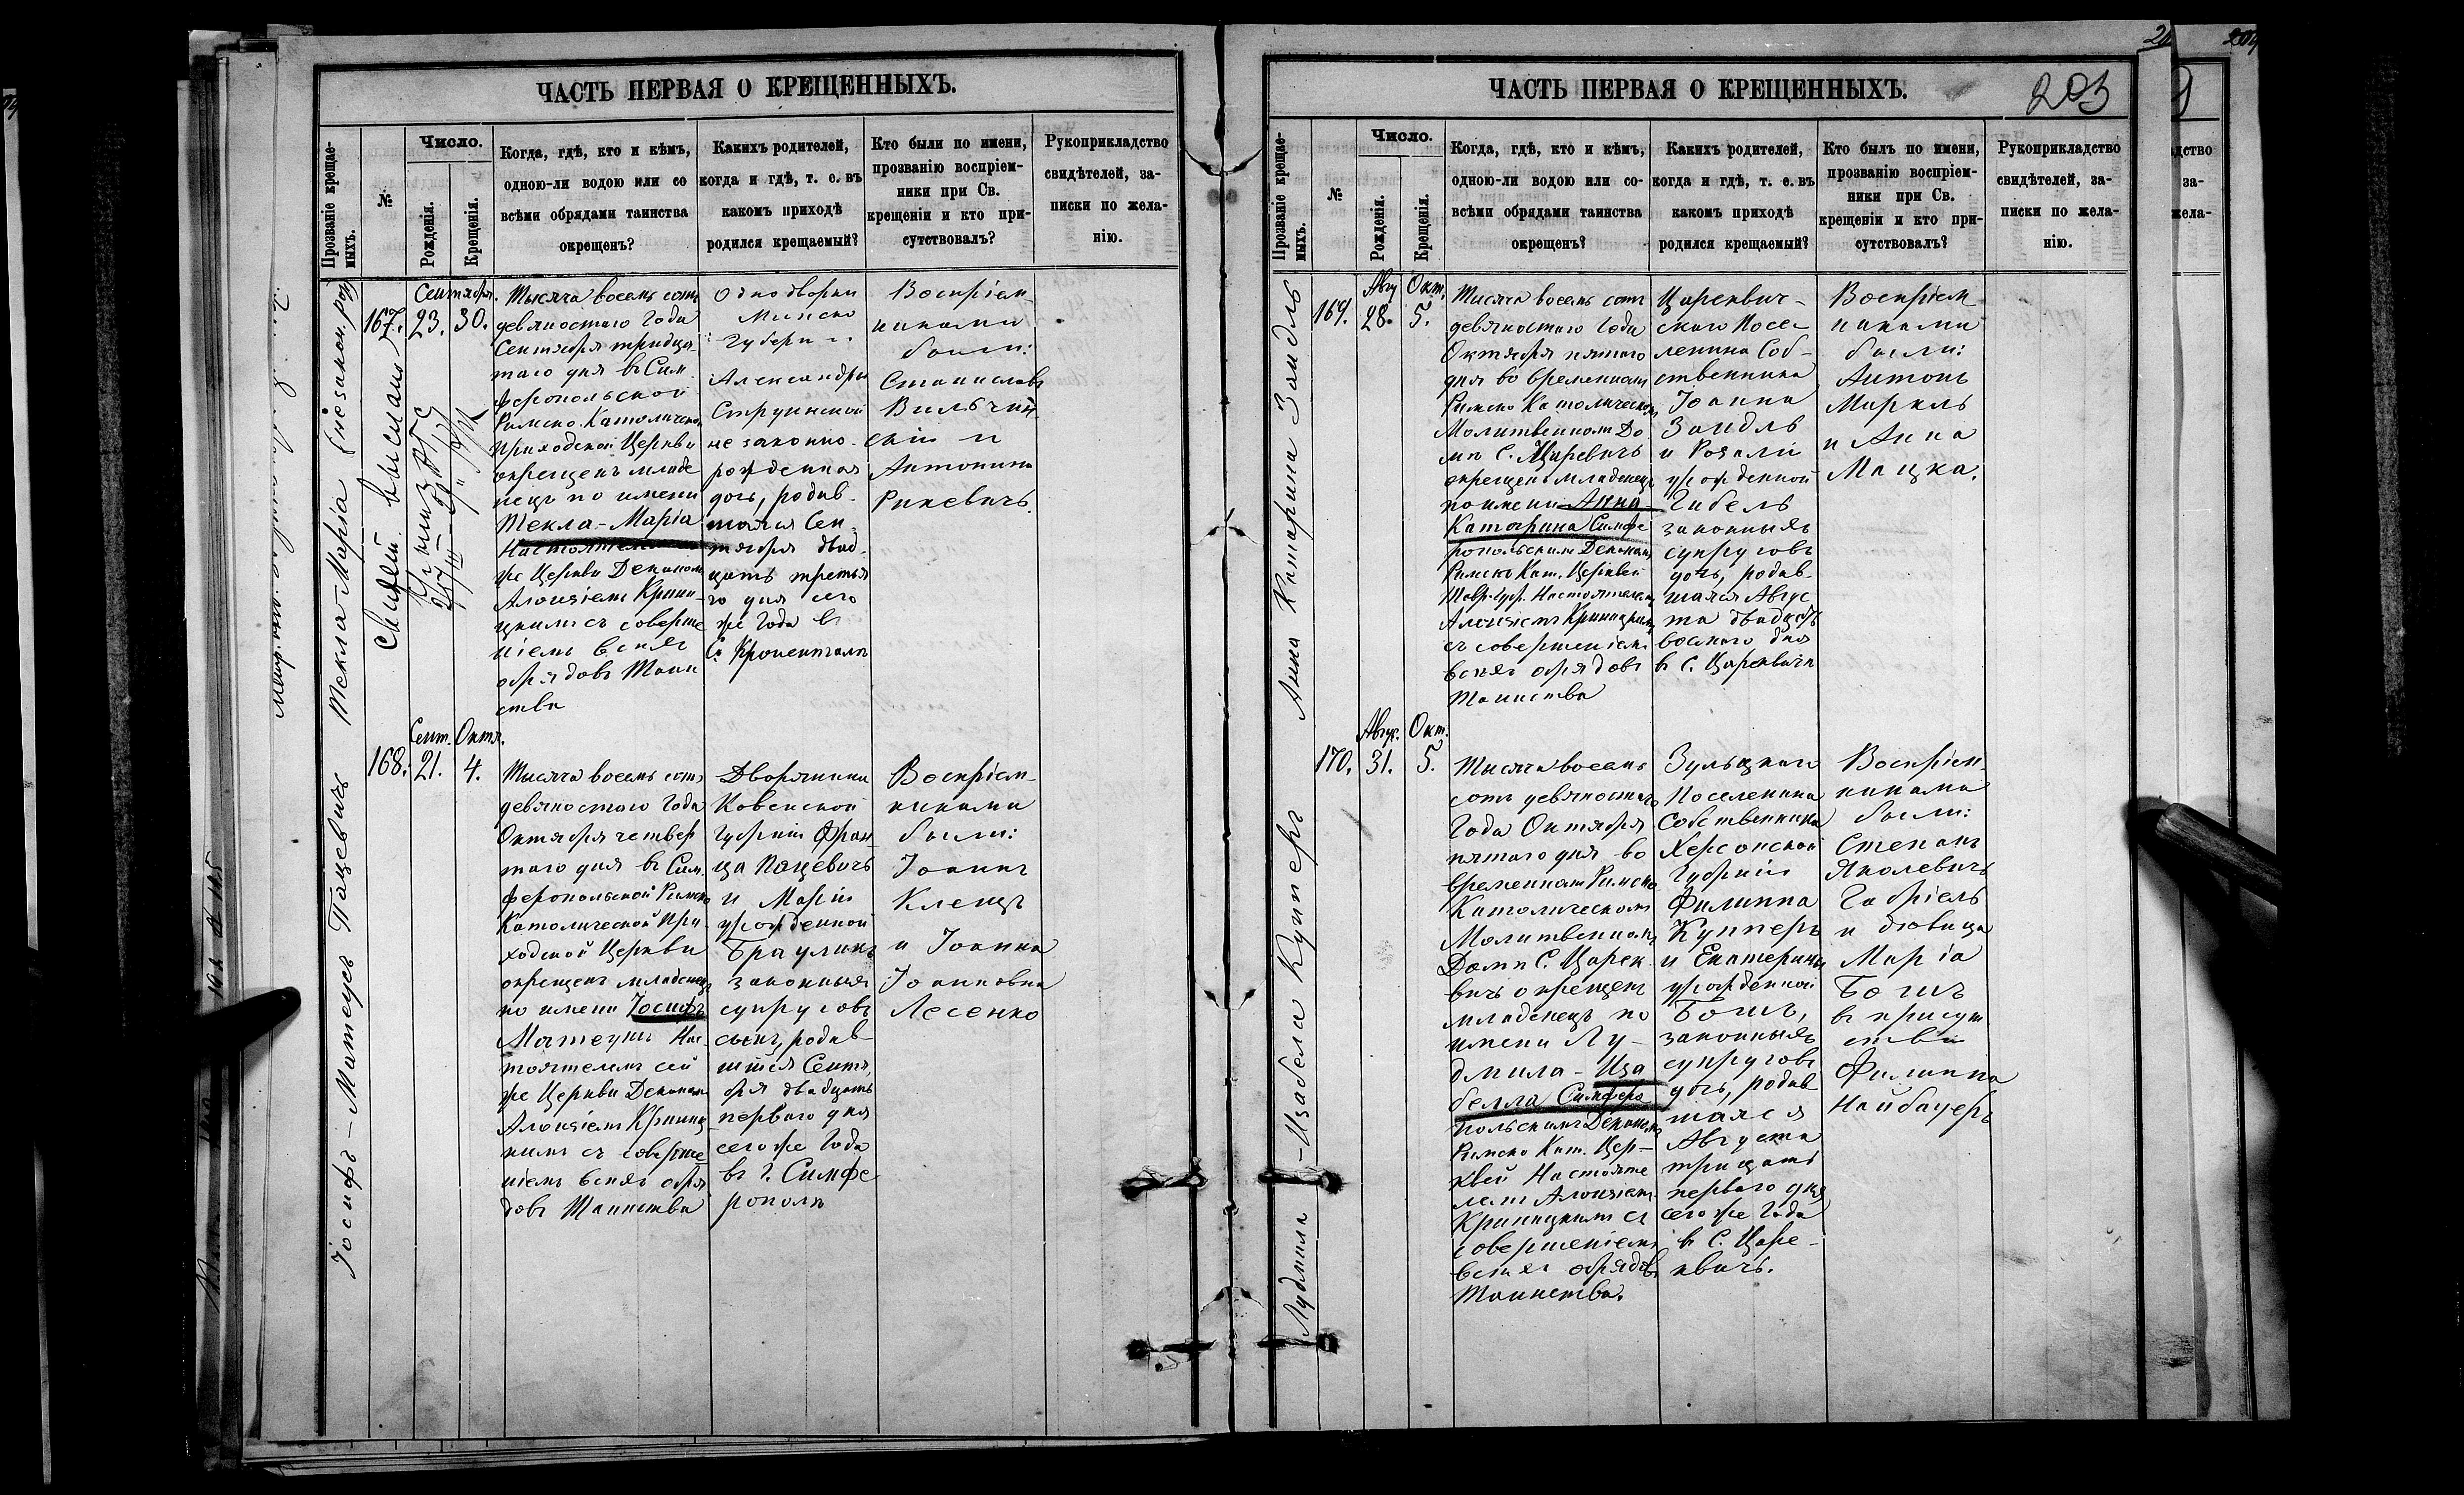 ЧАСТЬ ПЕРВАЯ О КРЕЩЕННЫХЪ.
Прозваніе крещае-
мыхъ.
№
Число.
Рожденія.
Крещенія.
Когда, гдѣ, кто и кѣмъ,
одною-ли водою или со
всѣми обрядами таинства
окрещенъ?
Какихъ родителей,
когда и гдѣ, т. е. въ
какомъ приходѣ
родился крещаемый?
Кто были по имени,
прозванію воспріем-
ники при Св.
крещеніи и кто при-
сутствовалъ?
Рукоприкладство
свидѣтелей, за-
писки по жела-
нію.
Текла-Марія
Сентября
167. 23. 30.
Тысяча восемь сотъ
девяностаго Года
Сентября тридца-
таго дня въ Сим
феропольской
Римско-Католической
Приходской Церкви
окрещенъ младе
нецъ по имени
Текла-Марія
Настоятелемъ
же Церкви Деканомъ
Алоизіемъ Криниц-
цкимъ съ соверше
ніемъ всѣхъ
обрядовъ Таин
ства
Однодворки
Минско
Губерніи
Александры
Струинской
незаконно-
рожденная
дочь, родив-
шаяся Сен-
тября двад-
цать третья
го дня сего
же Года въ
С. Кроненталѣ
Воспріем-
никами
были:
Станиславъ
Вильчин
скій и
Антонина
Рикевичъ.
Іосифъ-Матеушъ Пацевичъ
Сент. Октя.
168. 21. 4.
Тысяча восемь сотъ
девяностаго Года
Октября четвер
таго дня въ Сим.
феропольской Римско
Католической При-
ходской Церкви
окрещенъ младенецъ
по имени Іосифъ
Матеушъ Нас-
тоятелемъ сей
же Церкви Деканомъ
Алоизіемъ Криниц
кимъ съ соверше
ніемъ всѣхъ обря
довъ Таинства
Дворянина
Ковенской
Губерніи Фран
ца Пацевичъ
и Маріи
урожденной
Браулинъ
законныхъ
супруговъ
сынъ, родив-
шійся Сентя-
бря двадцать
перваго дня
сего же Года
въ г. Симфе
рополѣ
Воспріем-
никами
были:
Іоаннъ
Кленцъ
и Іоанна
Іоанновна
Лесенко
ЧАСТЬ ПЕРВАЯ О КРЕЩЕННЫХЪ.
203
Прозваніе крещае-
мыхъ.
№
Число.
Рожденія.
Крещенія.
Когда, гдѣ, кто и кѣмъ,
одною-ли водою или со-
всѣми обрядами таинства
окрещенъ?
Какихъ родителей,
когда и гдѣ, т. е. въ
какомъ приходѣ
родился крещаемый?
Кто былъ по имени,
прозванію воспріем-
ники при Св.
крещеніи и кто при-
сутствовалъ?
Рукоприкладство
свидѣтелей, за-
писки по жела-
нію.
Анна Катарина Зайдль
Авгу Окт.
169. 28. 5.
Тысяча восемь сотъ
девяностаго Года
Октября пятаго
дня во временномъ
Римско Католическомъ
Молитвенномъ До
мѣ С. Царевичъ
окрещенъ младенецъ
по имени Анна
Катарина Симфе
ропольскимъ Деканомъ
Римско Кат. Церквей
Тавр. Губ. Настоятелемъ
Алоизіемъ Криницкимъ
съ совершеніемъ
всѣхъ обрядовъ
Таинства
Цареквич-
скаго Посе-
ленина Соб-
ственника
Іоанна
Зайдль
и Розаліи
урожденной
Гибель
законныхъ
супруговъ
дочь, родив-
шаяся Авгус
та двадцать
восьмаго дня
въ С. Цареквичъ
Воспріем-
никами
были:
Антонъ
Маркль
и Анна
Мацка.
Лудмила-Изабела Купперъ
Авгус. Окт.
170. 31. 5.
Тысяча восемь
сотъ девяностаго
Года Октября
пятаго дня во
временномъ Римско
Католическомъ
Молитвенномъ
Домѣ С. Царек-
вичъ окрещенъ
младенецъ по
имени Лу-
дмила-Иза
белла Симферо
польскимъ Деканомъ
Римско Кат. Цер-
квей Настояте
лемъ Алоизіемъ
Криницкимъ съ
совершеніемъ
всѣхъ обрядовъ
Таинства.
Зульцкаго
Поселенина
Собственника
Херсонской
Губерніи
Филиппа
Купперъ
и Екатерины
урожденной
Бошъ,
законныхъ
супруговъ
дочь, родив
шаяся
Августа
тридцать
перваго дня
сего же Года
въ С. Царе-
квичъ.
Воспріем-
никами
были:
Степанъ
Яковлевичъ
Габріель
и дѣвица
Марія
Бошъ
въ присут
ствіи
Филиппа
Найбауеръ